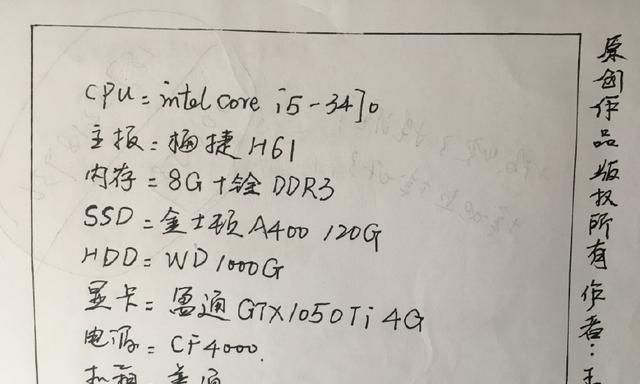 CPU=intel core i5-3470
主板=梅捷H61
内存=8G十铨DDR3
SSD=金士顿A400 120G
HDD=WD1000G
显卡=盈通GTX1050Ti 4G
电源=CF4000.
机箱=普通
原创作品版权所有作者:王